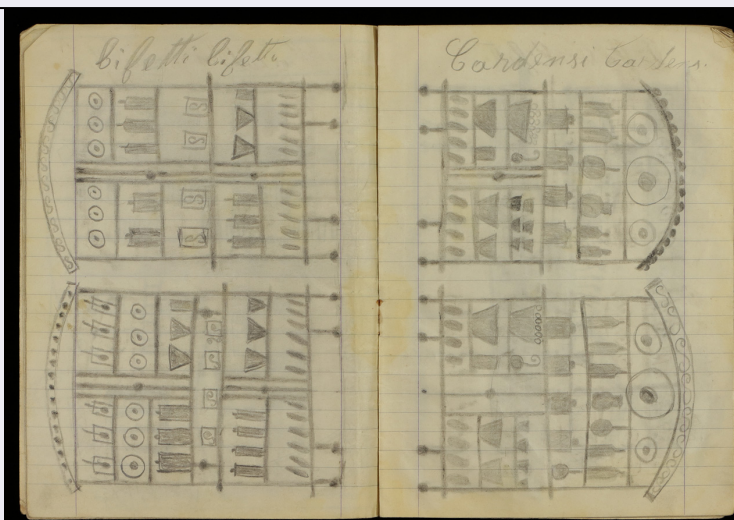 bifetti bifeti
Cardensi Cardens.